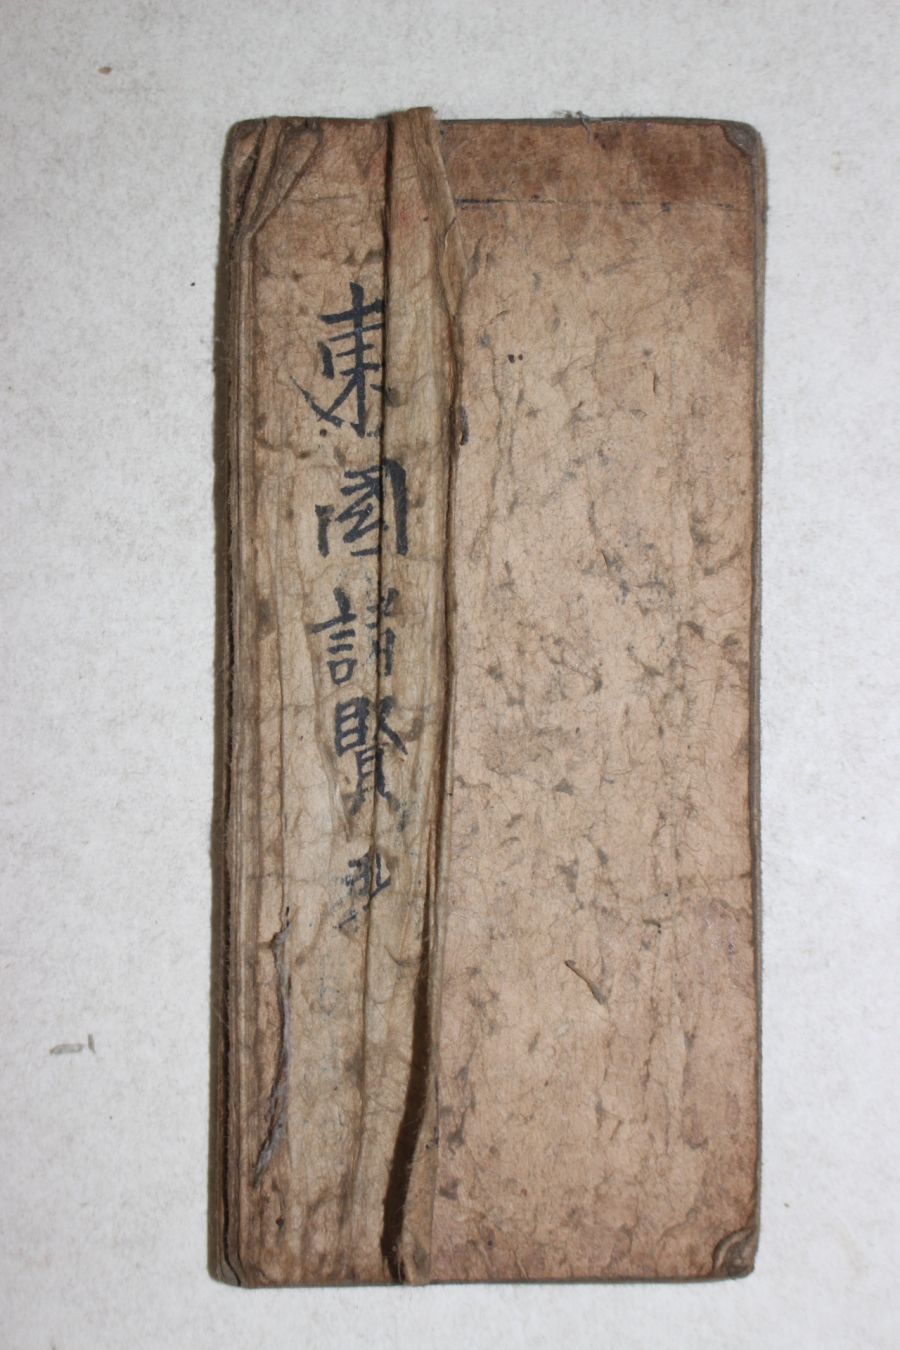 東國諸賢